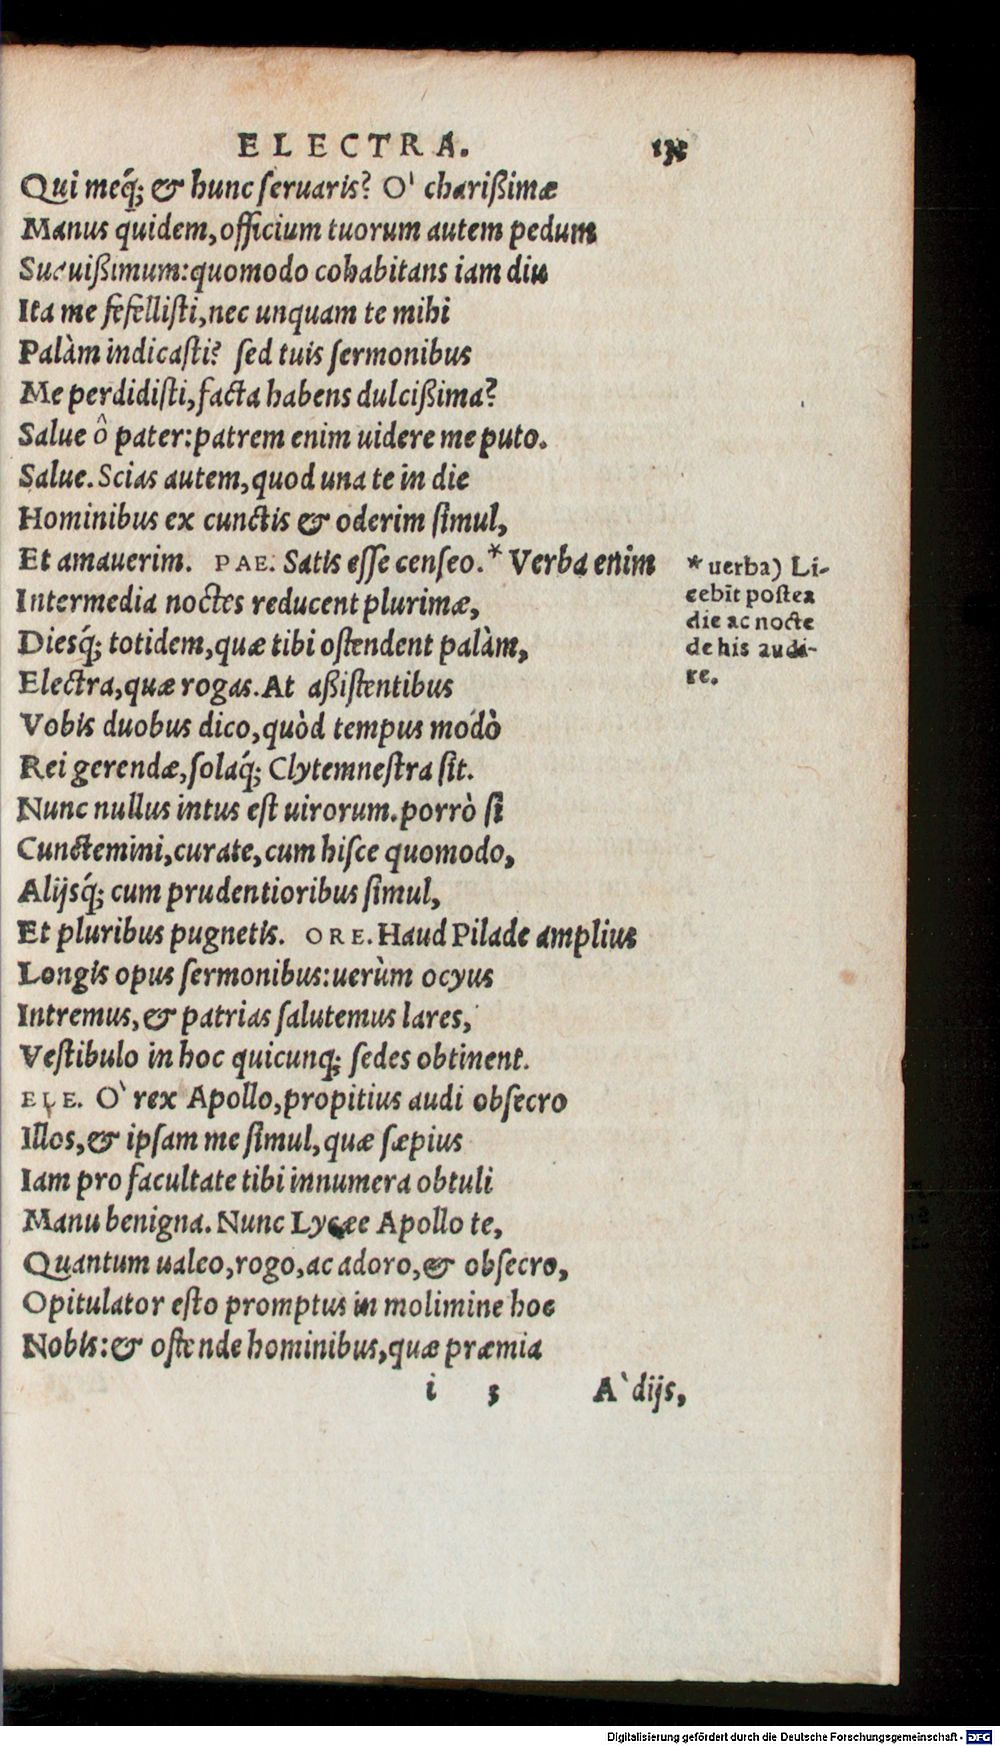 ELECTRA.
Qui meq́; & hunc ſeruaris? O' charißimæ
Manus quidem, officium tuorum autem pedum
Suauißimum: quomodo cohabitans iam diu
Ita me fefelliſti, nec unquam te mihi
Palàm indicaſti? ſed tuis ſermonibus
Me perdidiſti, facta habens dulcißima?
Salue ô pater: patrem enim uidere me puto.
Salue. Scias autem, quod una te in die
Hominibus ex cunctis & oderim ſimul,
Et amauerim. PAE. Satis eſſe cenſeo. * Verba enim
* uerba) Li-
cebit poſtea
die ac nocte
de his audi-
re.
Intermedia noctes reducent plurimæ,
Diesq́; totidem, quæ tibi oſtendent palàm,
Electra, quæ rogas. At aßiſtentibus
Vobis duobus dico, quòd tempus modò
Rei gerendæ, ſolaq́; Clytemneſtra ſit.
Nunc nullus intus eſt uirorum. porrò ſi
Cunctemini, curate, cum hiſce quomodo,
Alijsq́; cum prudentioribus ſimul,
Et pluribus pugnetis. ORE. Haud Pilade amplius
Longis opus ſermonibus: uerùm ocyus
Intremus, & patrias ſalutemus lares,
Veſtibulo in hoc quicunq; ſedes obtinent.
ELE. O` rex Apollo, propitius audi obſecro
Illos, & ipſam me ſimul, quæ ſæpius
Iam pro facultate tibi innumera obtuli
Manu benigna. Nunc Lycæe Apollo te,
Quantum ualeo, rogo, ac adoro, & obſecro,
Opitulator eſto promptus in molimine hoc
Nobis: & oſtende hominibus, quæ præmia
i 3 A` dijs,
Digitalisierung gefördert durch die Deutsche Forschungsgemeinschaft - DFG